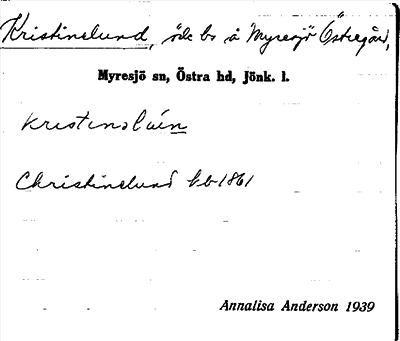 Kristinelund, öde bs å Myresjö Östregård,
Myresjö sn, Östra hd, Jönk. l.
Christinelund kb 1861
Annalisa Anderson 1939